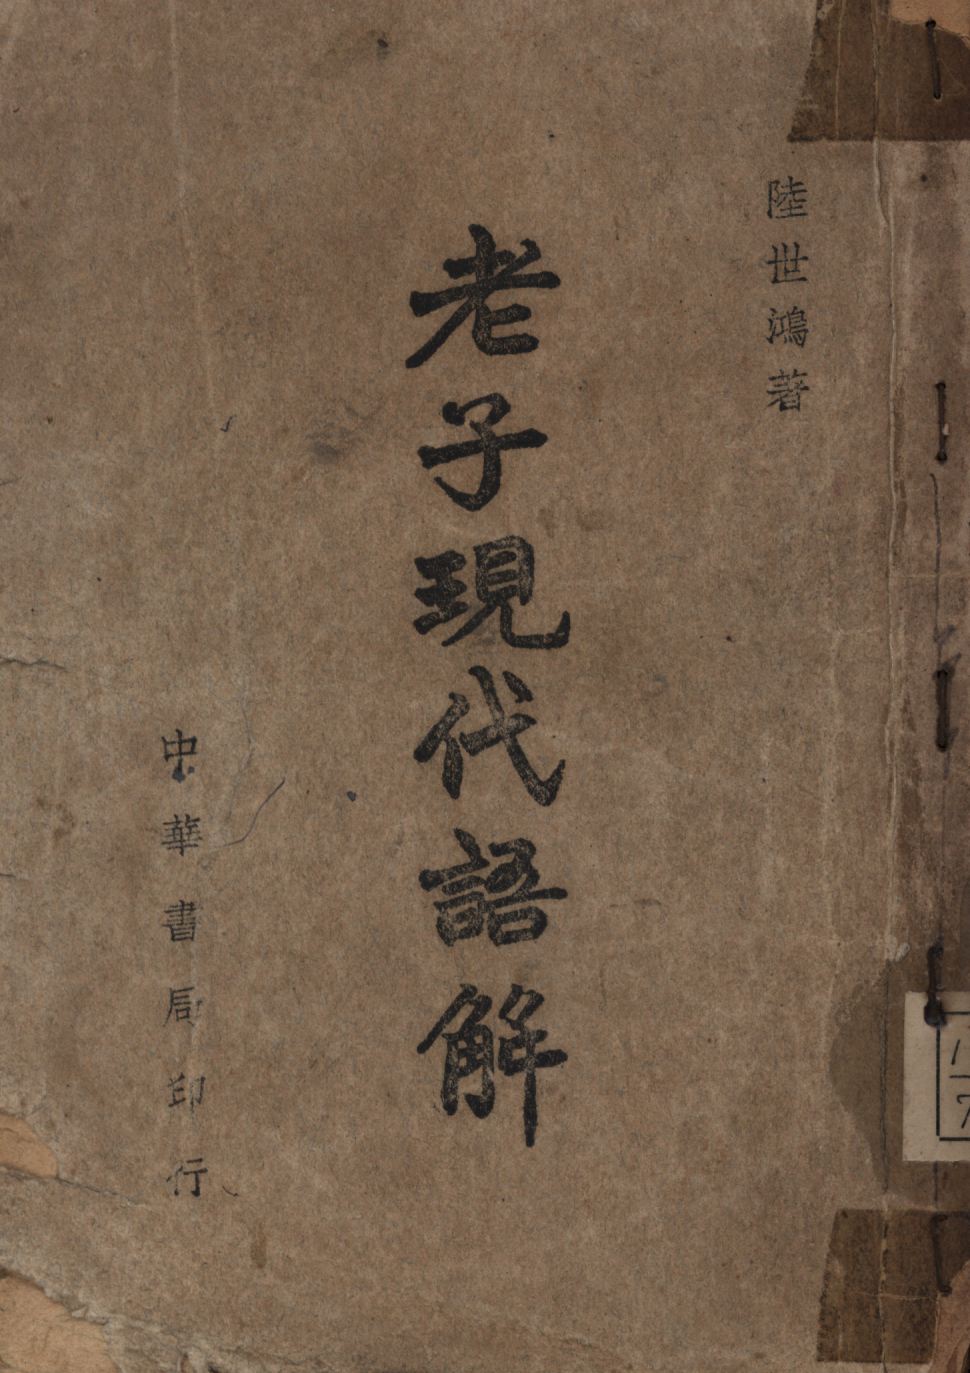 陸世鴻著
老子現代語解
中華書局印行
1
7